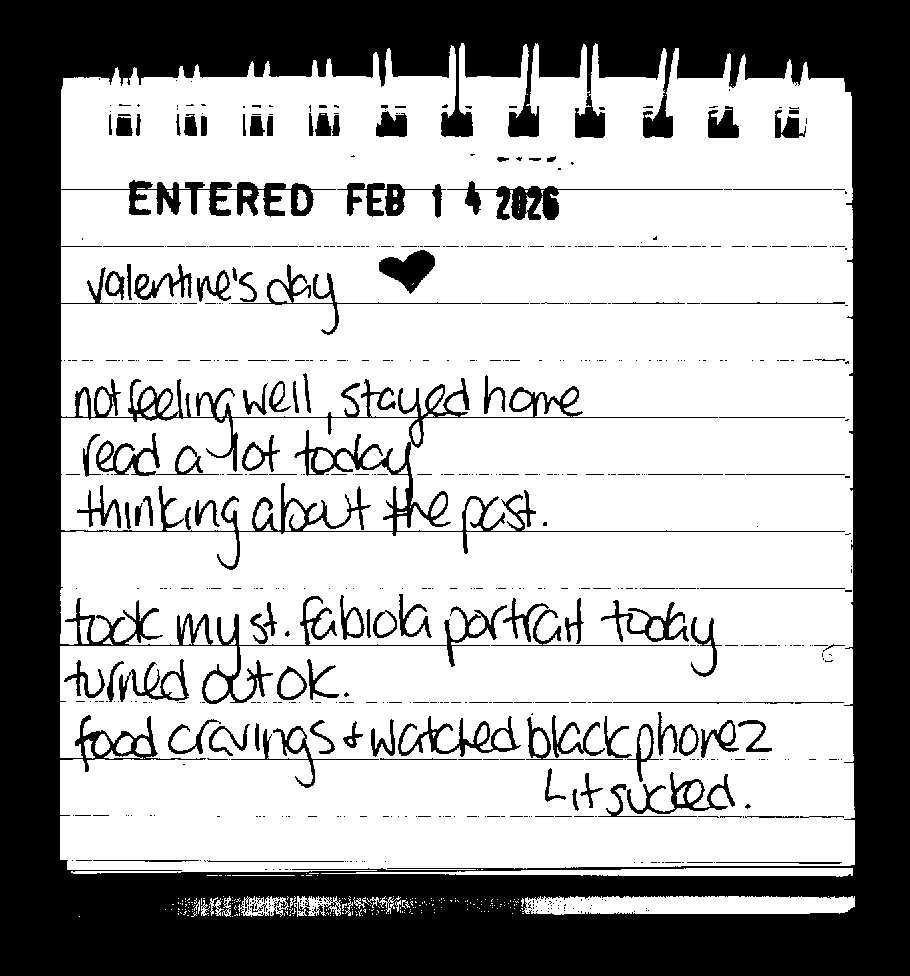 ENTERED FEB 14 2026
valentine's day ♥
not feeling well, stayed home
read a lot today
thinking about the past.
took my st. fabiola portrait today
turned out ok.
food cravings + watched black phone 2
↳ it sucked.